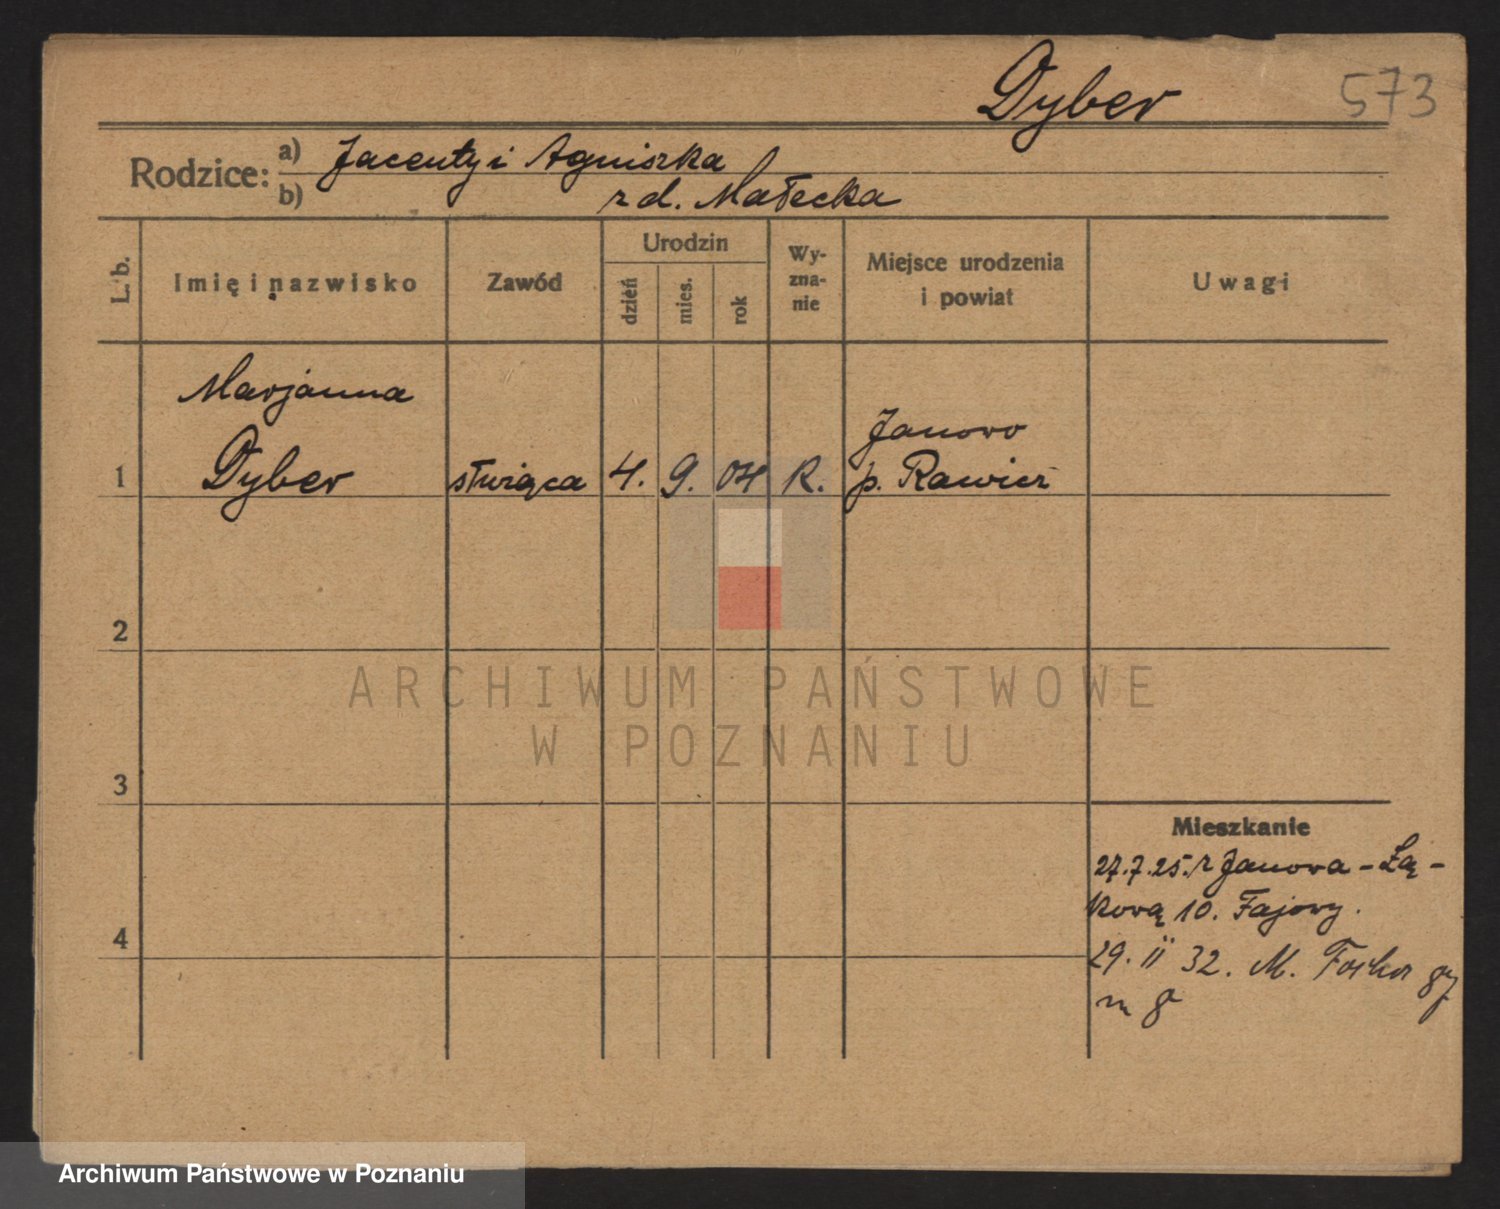 Dyber 573
Rodzice: a) Jacenty i Agniszka
b) z d. Małecka
L. b. Imię i nazwisko Zawód Urodzin dzień mies. rok Wyznanie Miejsce urodzenia i powiat Uwagi
Marjanna Janowo
1 Dyber służąca 4. 9. 04 R. p. Rawicz
2
ARCHIWUM PAŃSTWOWE
W POZNANIU
3
Mieszkanie
27.7.25. z Janowa – Łą–
kową 10. Fajowy.
4
29. II 32. M.
Archiwum Państwowe w Poznaniu